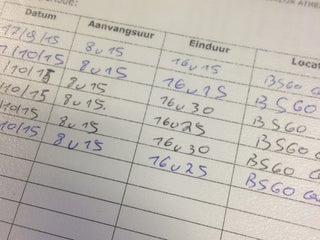 Datum Aanvangsuur Einduur Locat
17/9/15 8u15 16u15 BS60
1/10/15 8u15 16u15 BS60
/10/15 8u15 16u30 BS60
/10/15 8u15 16u25 BS60
/10/15 8u15 16u30 BS60
10/15 8u15 16u25 BS60